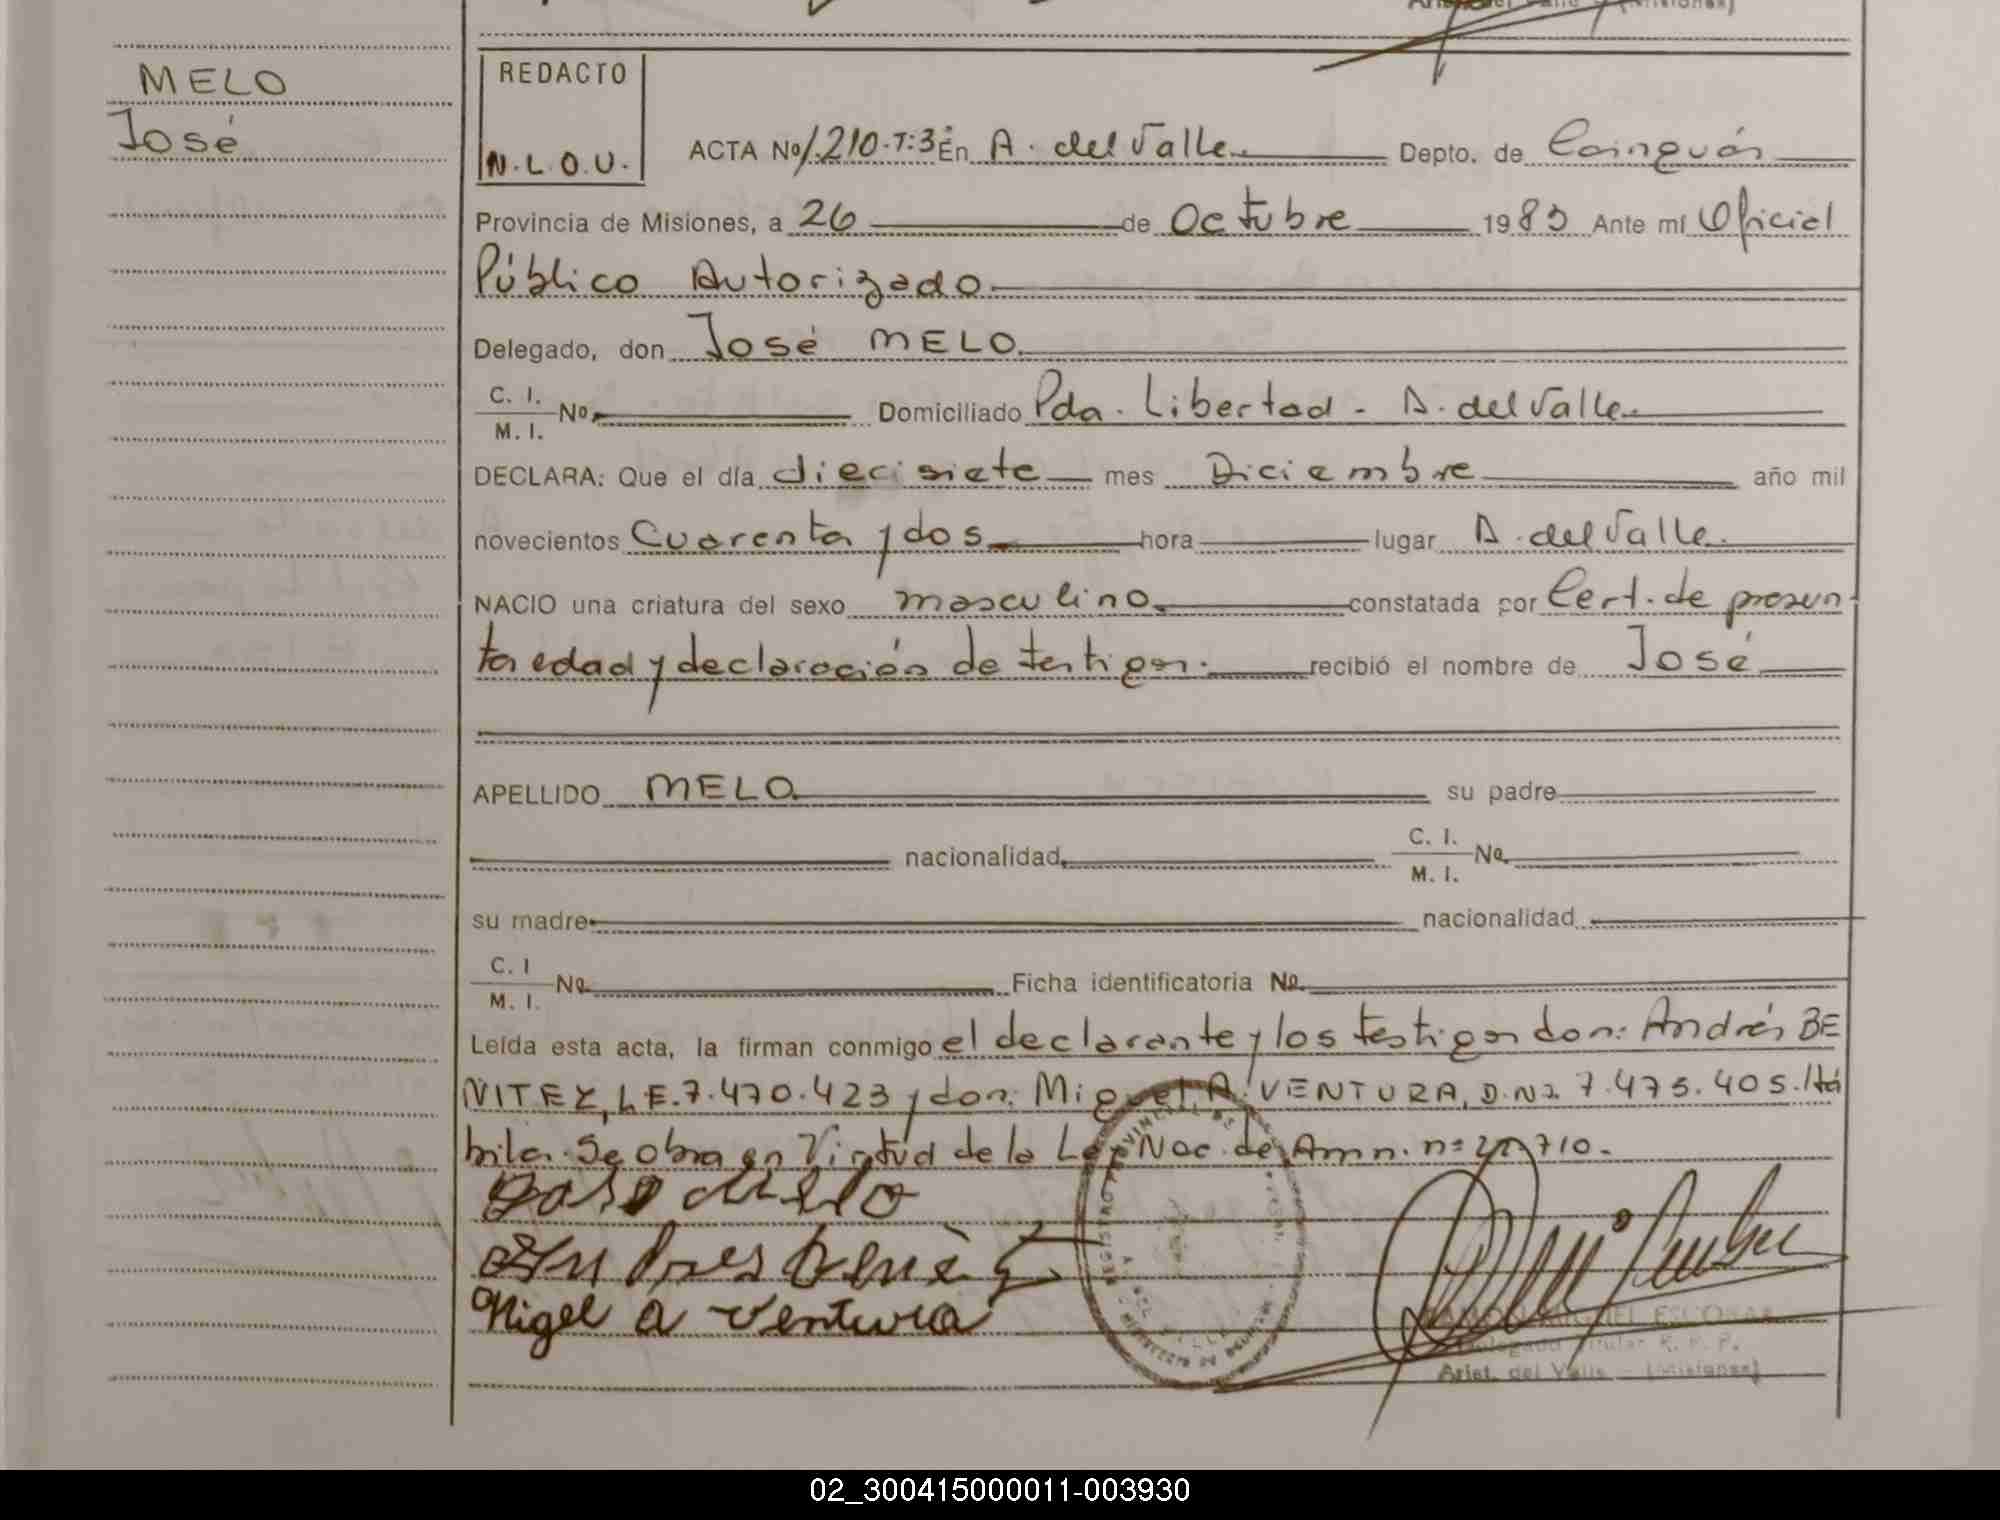 MELO
José
REDACTO
N.L.O.U.
ACTA Nº 1.210-T:3º En A. del Valle Depto. de Cainguás
Provincia de Misiones, a 26 de Octubre 1983 Ante mí Oficial
Público Autorizado
Delegado, don José MELO
C. I.
M. I. Nº Domiciliado Pda. Libertad - A. del Valle
DECLARA: Que el día diecisiete mes Diciembre año mil
novecientos Cuarenta y dos hora lugar A. del Valle
NACIO una criatura del sexo masculino constatada por Cert. de presun
ta edad y declaración de testigos. recibió el nombre de José
APELLIDO MELO su padre
nacionalidad C. I.
M. I. Nº
su madre nacionalidad
C. I
M. I. Nº Ficha identificatoria Nº
Leída esta acta, la firman conmigo el declarante y los testigos don: Andrés BE
NITEZ, L.E. 7.470.423 y don: Miguel A. VENTURA, D.N.I. 7.475.405. Há
biles. Se obra en Virtud de la Ley Nac. de Amn. nº 710.-
José Melo
Andres Benitez
Migel a ventura
RAMON MIGUEL ESCOBAR
Delegado Titular R. P. P.
Arist. del Valle - (Misiones)
02_300415000011-003930